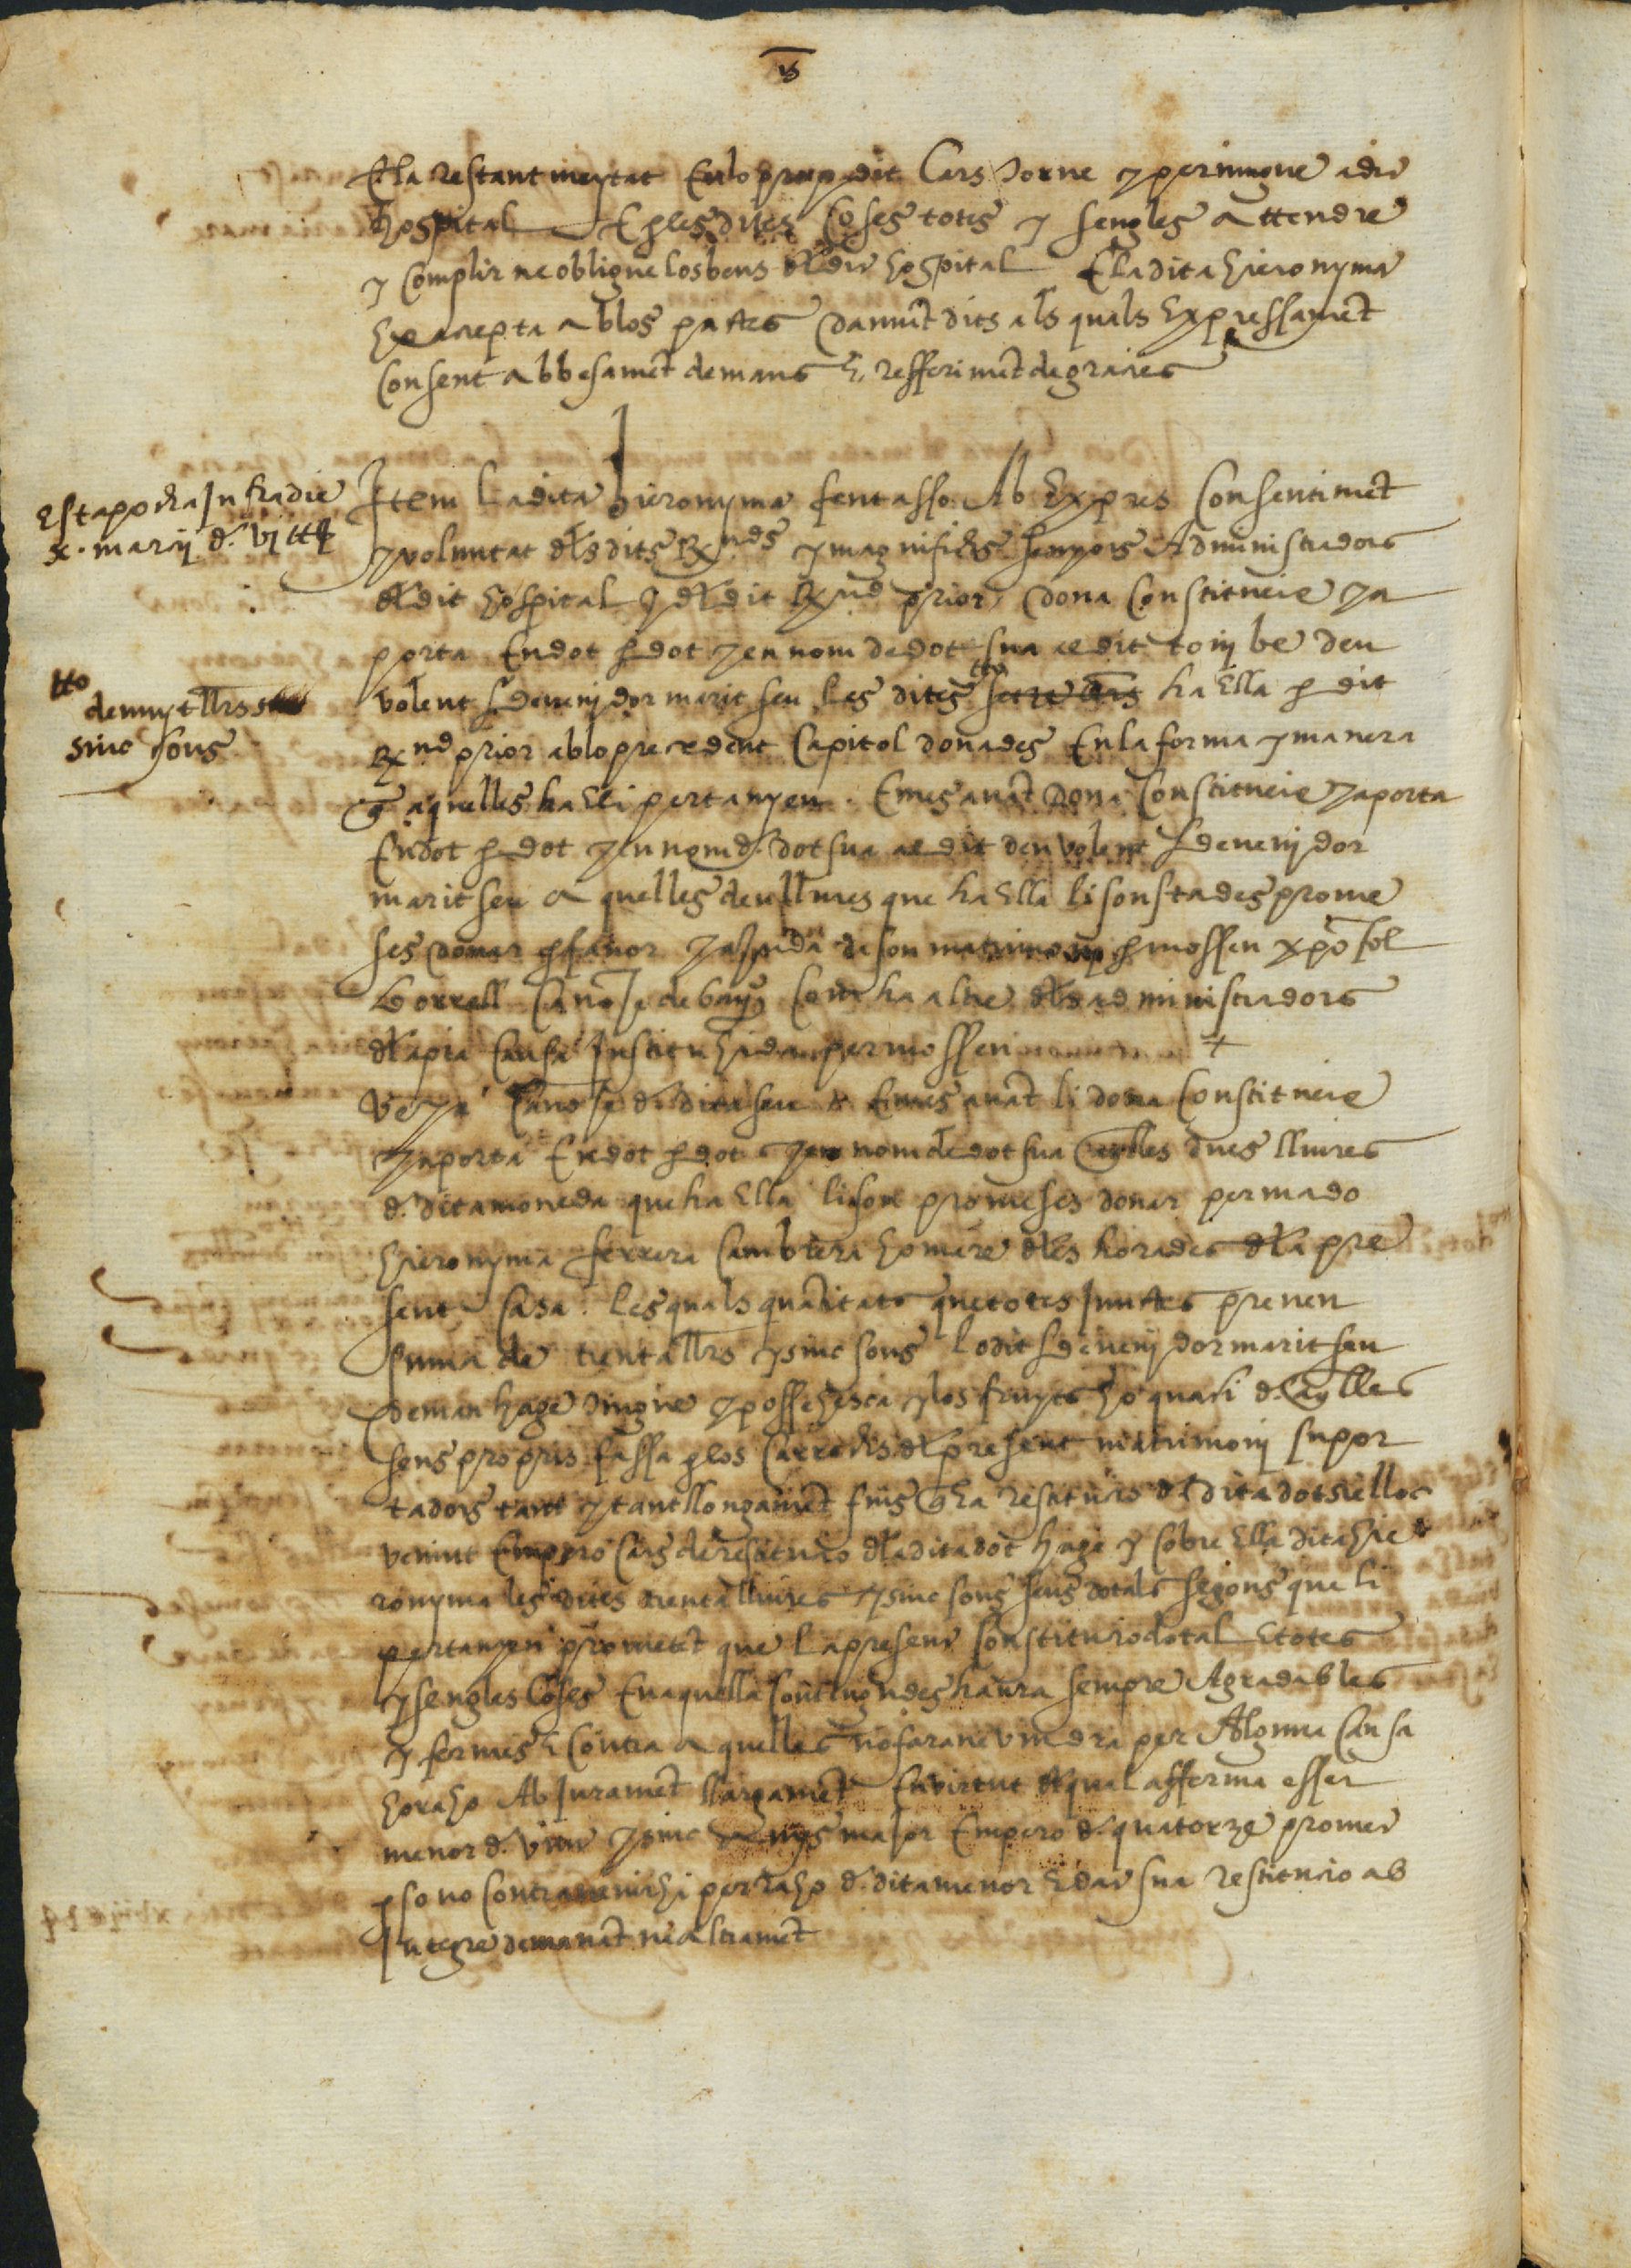 E la restant meytat en lo prop dit cars torne y pervingue a dit
hospital E per les dites coses totes y sengles attendre
y complir ne obligue los bens del dit hospital E la dita hieronyma
ho accepta ab los pactes damunt dits als quals expressament
consent ab besament de mans E refferiment de gracies
Est apocha Infra die
x. marcij d.
Item la dita hieronyma fent asso ab expres consentiment
y voluntat dels dits Rnds y magnifichs senyors Administradors
del dit hospital y del dit Rnd prior dona constitueix y a
porta en dot per dot y en nom de dot sua al dit tomj be deu
tto
de vuyt llrs
sinc sous
volent sdevenjdor marit seu les dites tto ha ella per dit
Rnd prior ab lo precedent capitol donades En la forma y manera
q aquelles ha ell i pertanyen. E mes avant dona constitueix y aporta
En dot per dot y en nom d. dot sua al dit deu volent sdevenjdor
marit seu aquelles deu lliures que ha ella li son stades prome
ses donar per favor y ajuda de son matrimonj per mossen xpo fol
borrell canonge de com ha altre dels administradors
dela pia causa Instituhida per mossen +
canonge d. dita seu E mes avant li dona constitueix
y aporta En dot per dot y en nom de dot sua aqlles dues lliures
d. dita moneda que ha ella li son promeses donar per mado
hieronyma ferrera cambrera ho mare dels horades dela pre
sent casa. les quals quantitats que totes juntes prenen
suma de trenta llrs y sinc sous lo dit sdevenjdor marit seu
deman hage vingue y possehesca y los fruyts ho quasi d. aqlles
sens propris fassa per los carrechs del present matrimonj supor
tadors tant y tant llongament fins q ha restitucio d. dita dot sie lloc
venint Empero cars de restitucio dela dita dot hage y cobre ella dita hie
ronyma les dites trenta lliures y sinc sous seus dotals segons que li
pertanyen prometet que la present constitucio dotal E totes
y sengles coses En aquella contengudes haura sempre agradables
y fermes E contra aquelles no fara ne vindra per alguna causa
ho raho Ab jurament llargament En virtut del qual afferma esser
menor d. vint y sinc anys major Empero d. quatorze promet
per so no contravenirhi per raho d. dita menor edat sua restitucio ab
Integre demanant ne altrament